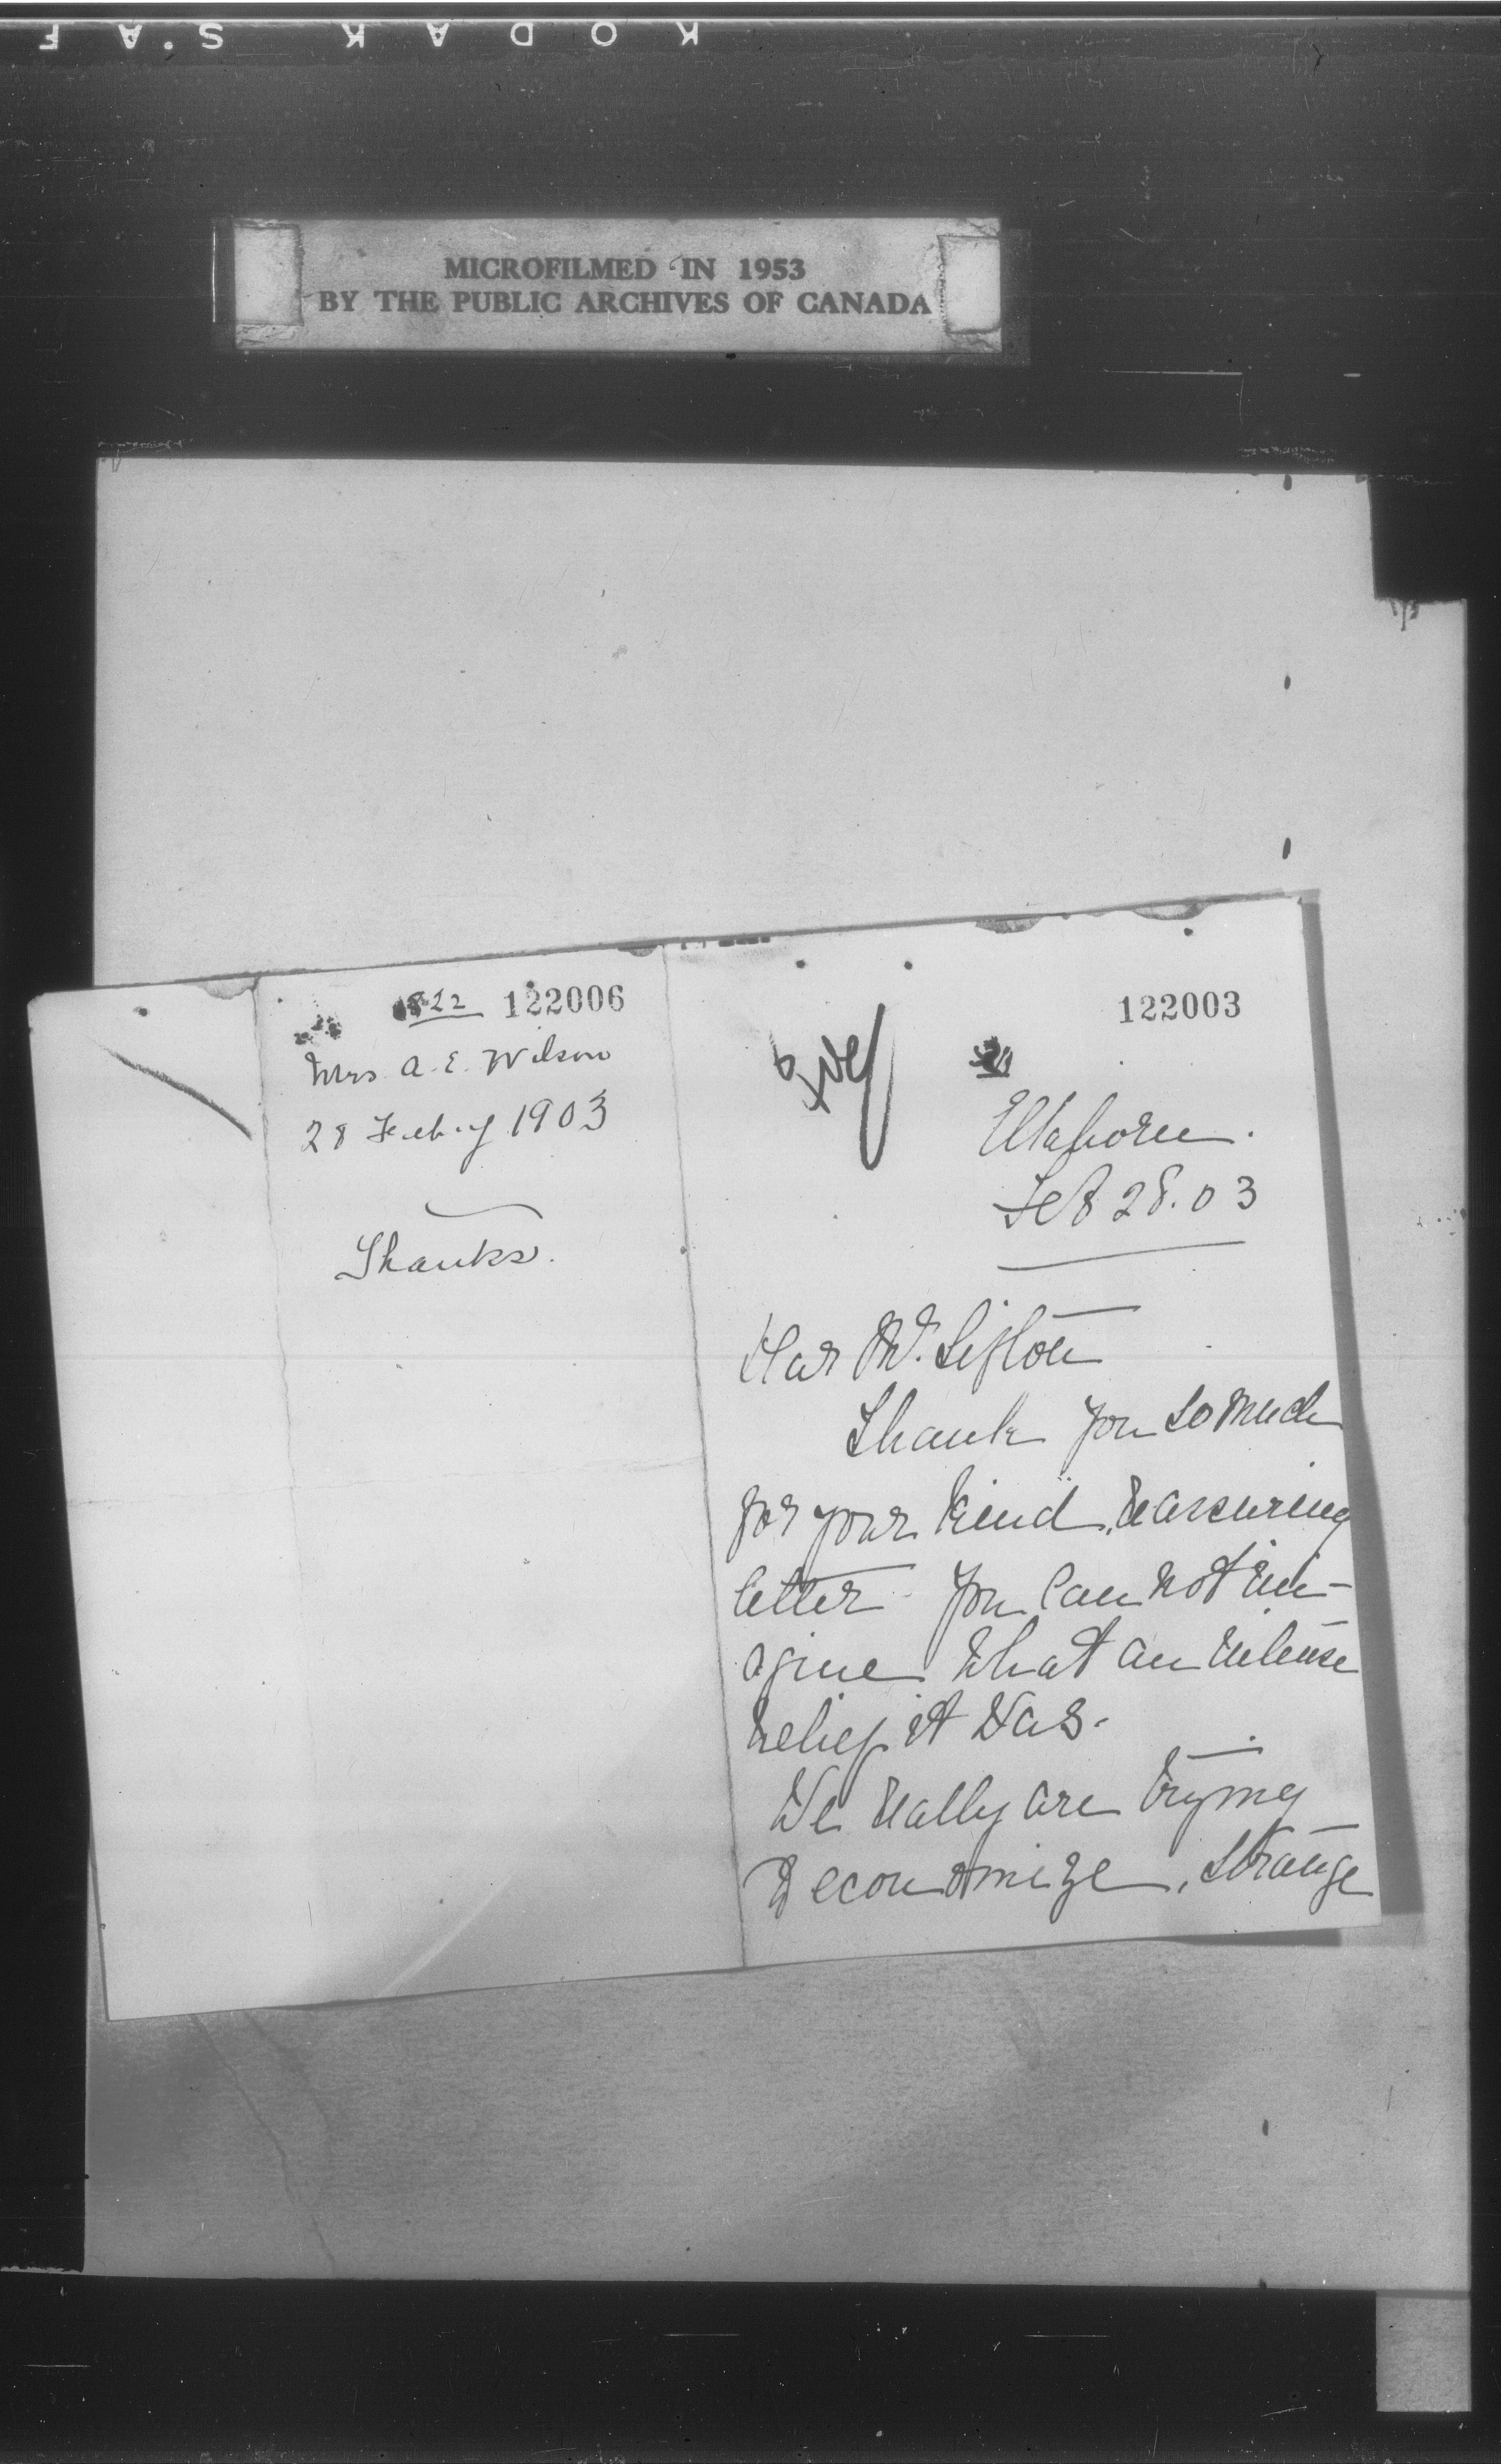 KODAK S.A F
MICROFILMED IN 1953
BY THE PUBLIC ARCHIVES OF CANADA
822 122006
Mrs. A. E. Wilson
28 Feby 1903
Thanks.
122003
Elkhorn.
Feb 28. 03
Dear Mr. Sifton
Thank you so much
for your kind, reassuring
letter. You can not im-
agine what an intense
relief it was.
We really are trying
to economize, strange